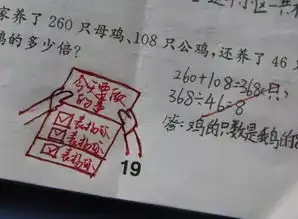 家养了 260 只母鸡,108 只公鸡,还养了 46 只
鸡的多少倍?
260+108=368(只)
368÷46=8
答:鸡的只数是鹅的8
今天要做
的事
表扬你
表扬你
表扬你
19